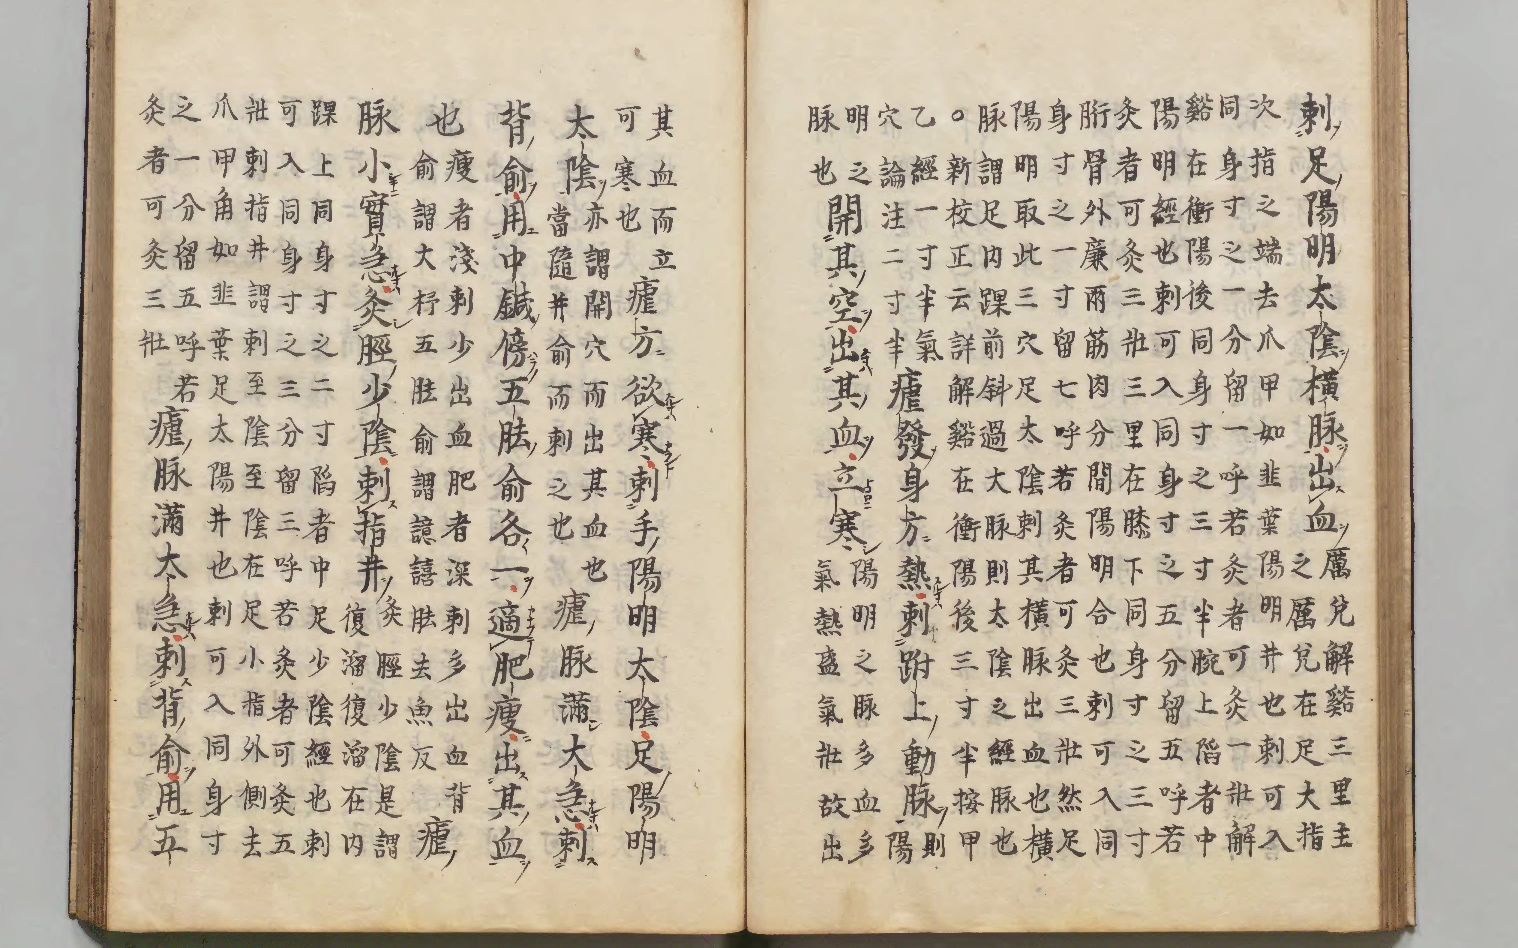 刺足陽明太陰橫脉出血厲兌解谿三里主
之厲兌在足大指
次指之端去爪甲如韭葉陽明井也刺可入
同身寸之一分留一呼若灸者可灸一壯解
谿在衝陽後同身寸之三寸半腕上陷者中
陽明經也刺可入同身寸之五分留五呼若
灸者可灸三壯三里在膝下同身寸之三寸
胻骨外廉兩筋肉分間陽明合也刺可入同
身寸之一寸留七呼若灸者可灸三壯然足
陽明取此三穴足太陰刺其橫脉出血也橫
脉謂足内踝前斜過大脉則太陰之經脉也
○新校正云詳解谿在衝陽後三寸半按甲
乙經一寸半氣
穴論注二寸半
瘧發身方熱刺跗上動脉則
陽
明之
脉也
開其空出其血立寒陽明之脉多血多
氣熱盛氣壯故出
其血而立
可寒也
瘧方欲寒刺手陽明太陰足陽明
太陰亦謂開穴而出其血也
當隨井俞而刺之也
瘧脉滿大急刺
背俞用中鍼傍五胠俞各一適肥瘦出其血
也瘦者淺刺少出血肥者深刺多出血背
俞謂大杼五胠俞謂譩譆胠去魚反
瘧
脉小實急灸脛少陰刺指井灸脛少陰是謂
復溜復溜在内
踝上同身寸之二寸陷者中足少陰經也刺
可入同身寸之三分留三呼若灸者可灸五
壯刺指井謂刺至陰至陰在足小指外側去
爪甲角如韭葉足太陽井也刺可入同身寸
之一分留五呼若
灸者可灸三壯
瘧脉滿大急刺背俞用五